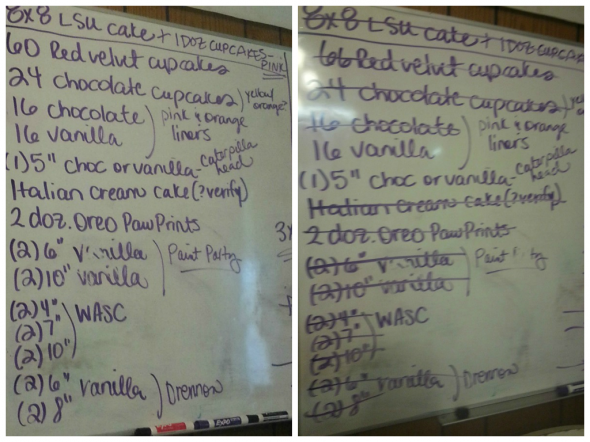 8x8 LSU cake + 1 DOZ CUPCAKES - PINK
60 Red velvet cupcakes
24 chocolate cupcakes) yellow orange?
16 chocolate) pink & orange
16 vanilla liners
(1) 5" choc or vanilla - caterpilla head
Italian cream cake (?verify)
2 doz. Oreo PawPrints
(2) 6" vanilla) Paint Party
(2) 10" vanilla
(2) 4"
(2) 7" WASC
(2) 10"
(2) 6" vanilla) Drennon
(2) 8"
EXPO
8x8 LSU cake + 1 DOZ CUPCAKES
60 Red velvet cupcakes
24 chocolate cupcakes) ye
16 chocolate) pink & orange
16 vanilla liners
(1) 5" choc or vanilla - caterpilla head
Italian cream cake (?verify)
2 doz. Oreo PawPrints
(2) 6" vanilla) Paint Party
(2) 10" vanilla
(2) 4"
(2) 7" WASC
(2) 10"
(2) 6" vanilla) Drennon
(2) 8"